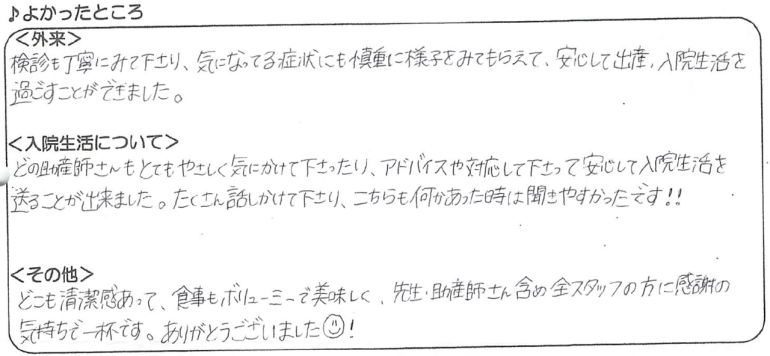 ♪よかったところ
<外来>
検診も丁寧にみて下さり、気になってる症状にも慎重に様子をみてもらえて、安心して出産、入院生活を
過ごすことができました。
<入院生活について>
どの助産師さんもとてもやさしく気にかけて下さったり、アドバイスや対応して下さって安心して入院生活を
送ることが出来ました。たくさん話しかけて下さり、こちらも何かあった時は聞きやすかったです!!
<その他>
どこも清潔感あって、食事もボリューミーで美味しく、先生・助産師さん含め全スタッフの方に感謝の
気持ちで一杯です。ありがとうございました☺!